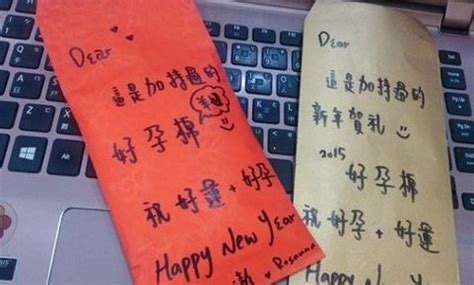 Dear
這是加持過的
好孕棉
祝好運+好孕
Happy New Year
Rosanna
Dear
這是加持過的
新年賀禮
2015
好孕棉
祝好孕+好運
Happy New
Year